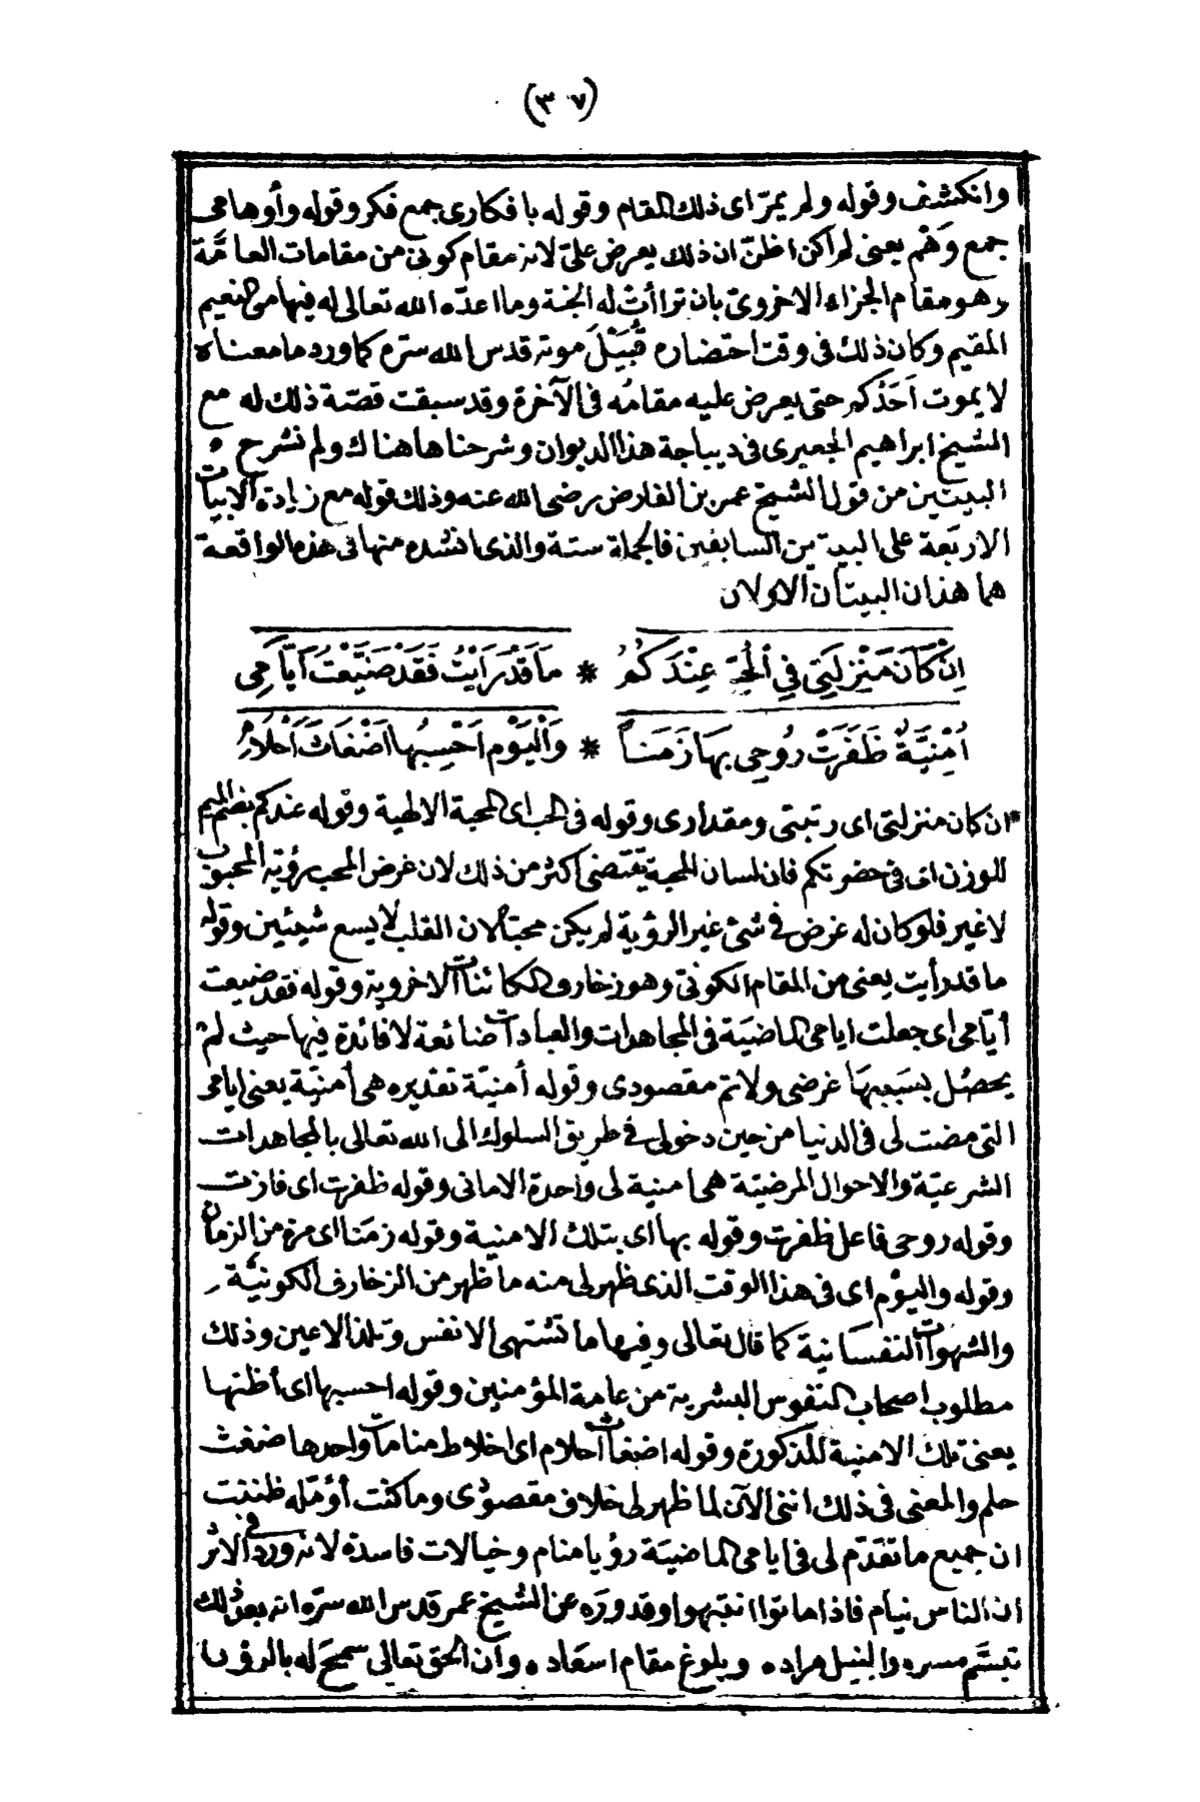 (٣٧)
وانكشف وقوله ولم يمرّ اى ذلك المقام وقوله بافكارى جمع فكر وقوله وأوهامى
جمع وَهْم يعنى لم اكن اظنّ ان ذلك يعرض علىّ لانه مقام كونى من مقامات العامّة
وهو مقام الجزاء الاخروىّ بان تراأت له الجنة وما اعدّه الله تعالى له فيها من النعيم
المقيم وكان ذلك فى وقت احتضاره قُبَيْلَ موته قدس الله سرّه كما ورد ما معناه
لا يموت اَحَدُكم حتى يعرض عليه مقامُه فى الآخرة وقد سبقت قصّة ذلك له مع
الشيخ ابراهيم الجعبرى فى ديباجة هذا الديوان وشرحناها هناك ولم نشرح
البيتين من قول الشيخ عمر بن الفارض رضى الله عنه وذلك قوله مع زيادة الابيات
الاربَعة على البيتين السابقين فالجملة ستة والذى انشده منها فى هذه الواقعة
هما هذان البيتان الاولان
اِنْ كَانَ مَنْزِلَتِى فِى الْحُبِّ عِنْدَكُمُ * مَا قَدْ رَاَيْتُ فَقَدْ ضَيَّعْتُ اَيَّامِى
اُمْنِيَّةٌ ظَفَرَتْ رُوحِى بِهَا زَمَناً * وَالْيَوْمَ اَحْسِبُهَا اَضْغَاثَ اَحْلَامِ
*ان كان منزلتى اى رتبتى ومقدارى وقوله فى الحب اى المحبة الالهية وقوله عندكم بضم الميم
للوزن اى فى حضرتكم فان لسان المحبة يقتضى اكثر من ذلك لان غرض المحب رؤية المحبوب
لا غير فلو كان له غرض فى شئ غير الرؤية لم يكن محبّا لان القلب لا يسع شيئين وقوله
ما قد رأيت يعنى من المقام الكونىّ وهو زخارف الكائنات الاخروية وقوله فقد ضيعت
أيّامى اى جعلت ايامى الماضيَة فى المجاهدات والعبادات ضائعة لا فائدة فيها حيث لم
يحصُل بسَببهَا غرضى ولا تمّ مقصودى وقوله أمنيّة تقديره هى أمنيّة يعنى ايامى
التى مضت لى فى الدنيا من حين دخولى فى طريق السلوك الى الله تعالى بالمجاهدات
الشرعيّة والاحوال المرضيّة هى امنية لى واحدة الامانى وقوله ظفرت اى فازت
وقوله روحى فاعل ظفرت وقوله بها اى بتلك الامنية وقوله زمَنا اى مرة من الزمان
وقوله واليوْم اى فى هذا الوقت الذى ظهر لى منه ما ظهر من الزخارف الكونيّة
والشهوات النفسَانية كما قال تعالى وفيها ما تشتهى الانفس وتلذ الاعين وذلك
مطلوب اصحاب النفوس البشرية من عامة المؤمنين وقوله احسبها اى أظنّها
يعنى تلك الامنية المذكورة وقوله اضغاث احلام اى اخلاط منامات واحدها ضغث
حلم والمعنى فى ذلك اننى الآن لما ظهر لى خلاف مقصودى وما كنت أؤمّله ظننت
ان جميع ما تقدّم لى فى ايامى الماضيَة رؤيا منام وخيالات فاسدة لانه ورد فى الاثر
ان الناس نيام فاذا ماتوا انتبهوا وقد ورَد عن الشيخ عمر قدس الله سرّه انه بعد ذلك
تبسَّم مسره والنيل مراده وبلوغ مقام اسعاده وان الحق تعالى سمح له بالرؤيا